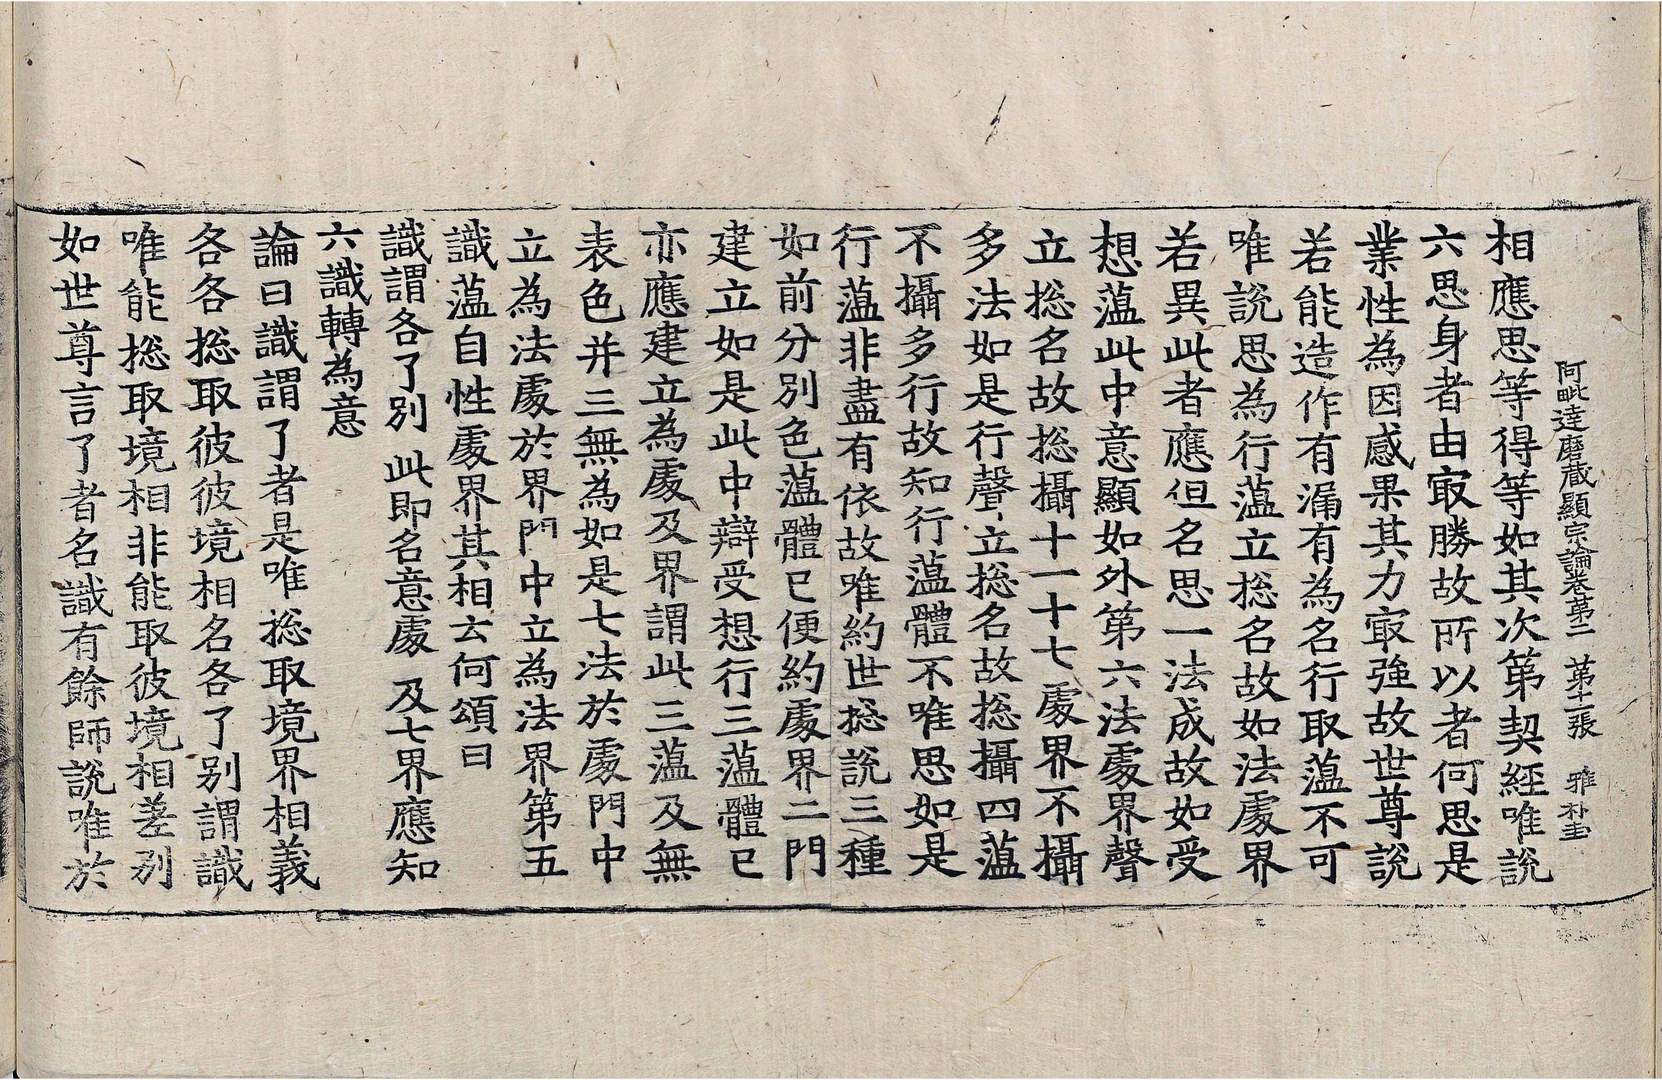 阿毗達磨蔵顯宗論卷苐二 苐十一張 雅 朴圭
相應思等得等如其次第契經唯說
六思身者由㝡勝故所以者何思是
業性為因感果其力㝡強故世尊說
若能造作有漏有為名行取蕰不可
唯說思為行蕰立揔名故如法處界
若異此者應但名思一法成故如受
想蕰此中意顯如外第六法處界聲
立揔名故揔攝十一十七處界不攝
多法如是行聲立揔名故揔攝四蕰
不攝多行故知行蕰體不唯思如是
行蕰非盡有依故唯約世揔說三種
如前分別色蕰體已便約處界二門
建立如是此中辯受想行三蕰體已
亦應建立為處及界謂此三蕰及無
表色并三無為如是七法於處門中
立為法處於界門中立為法界第五
識蕰自性處界其相云何頌曰
識謂各了別 此即名意處 及七界應知
六識轉為意
論曰識謂了者是唯揔取境界相義
各各揔取彼彼境相名各了別謂識
唯能揔取境相非能取彼境相差別
如世尊言了者名識有餘師說唯於